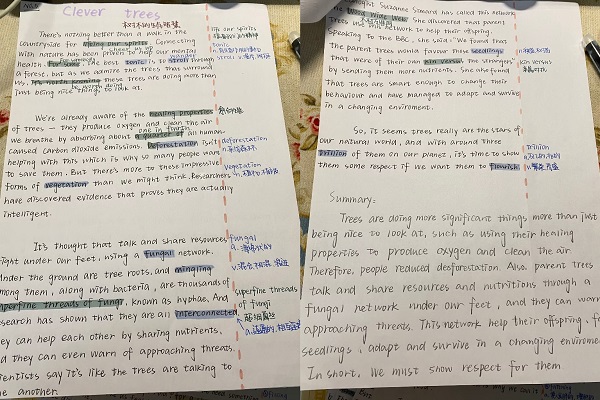 Clever trees
There's nothing better than a walk in the
countryside for lifting our spirits. Connecting
with nature has been proven to help our mental
health. For some the best tonic is to stroll through
a forest, but as we admire the trees that surround
us, it's worth knowing these trees are doing more than
just being nice things to look at.
lift our spirits
tonic
We're already aware of the healing properties
of trees – they produce oxygen and clean the air
one in fourth
we breathe by absorbing about a quarter of all human
caused carbon dioxide emissions. Deforestation isn't
helping with this which is why so many people want
to save them. But there's more to these impressive
forms of vegetation than we might think. Researchers
have discovered evidence that proves they are actually
intelligent.
deforestation
vegetation
It's thought that talk and share resources
right under our feet, using a fungal network.
Under the ground are tree roots, and mingling
among them, along with bacteria, are thousands of
superfine threads of fungi, known as hyphae. And
research has shown that they are all interconnected
they can help each other by sharing nutrients.
and they can even warn of approaching threats.
scientists say it's like the trees are talking to
one another.
fungal
superfine threads
of fungi
thought Suzanne Simard has called this network
the Wood Wide Web. She discovered that parent
trees use this network to help their offspring.
Speaking to the BBC, she said "We found that
the parent trees would favour those seedlings
that were of their own kin versus the strangers"
by sending them more nutrients. She also found
that trees are smart enough to change their
behaviour and have managed to adapt and survive
in a changing enviroment.
kin versus
So, it seems trees really are the stars of
our natural world, and with around three
trillion of them on our planet, it's time to show
them some respect if we want them to flourish.
trillion
Summary:
Trees are doing more significant things more than just
being nice to look at, such as using their healing
properties to produce oxygen and clean the air
Therefore, people reduced desforestation. Also, parent trees
talk and share resources and nutritions through a
fungal network under our feet, and they can warn
approaching threats. This network help their offspring,
seedlings, adapt and survive in a changing enviroment
In short, We must show respect for them